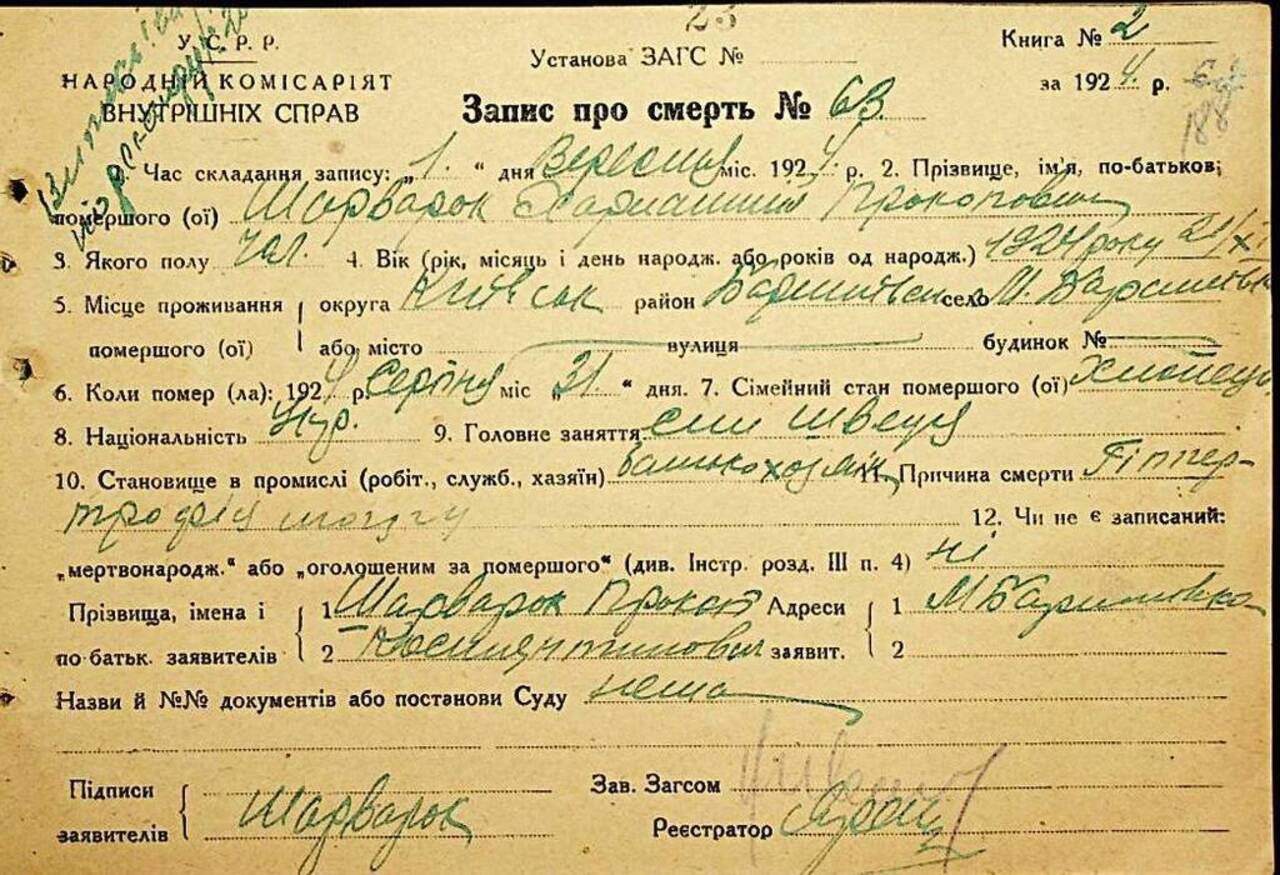 23
У.С.Р.Р.
НАРОДНІЙ КОМІСАРІЯТ
ВНУТРІШНІХ СПРАВ
Установа ЗАГС №
Книга № 2
за 1924 р.
Запис про смерть № 63.
Час складання запису: „1.“ дня Вересня міс. 1924 р. 2. Прізвище, ім'я, по-батьков;
помершого (ої) Шарварок Прокопович
3. Якого полу Чол. 4. Вік (рік, місяць і день народж. або років од народж.) 1924 року 21/XI
5. Місце проживання округа Київськ район Баришівськ село М. Баришівка
помершого (ої) або місто вулиця будинок №
6. Коли помер (ла): 1924 р. Серпня міс „31.“ дня. 7. Сімейний стан помершого (ої) Хлопець
8. Національність Укр. 9. Головне заняття син швеця
10. Становище в промислі (робіт., служб., хазяїн) 11. Причина смерти Гіппер-
трофія мозгу 12. Чи не є записаний:
„мертвонародж.“ або „оголошеним за помершого“ (див. Інстр. розд. III п. 4) ні
Прізвища, імена і 1 Шарварок Прокоп Адреси 1 М Баришовка
по батьк. заявителів 2 Костянтинович заявит. 2
Назви й №№ документів або постанови Суду нема
Підписи Зав. Загсом
заявителів Шарварок Реєстратор